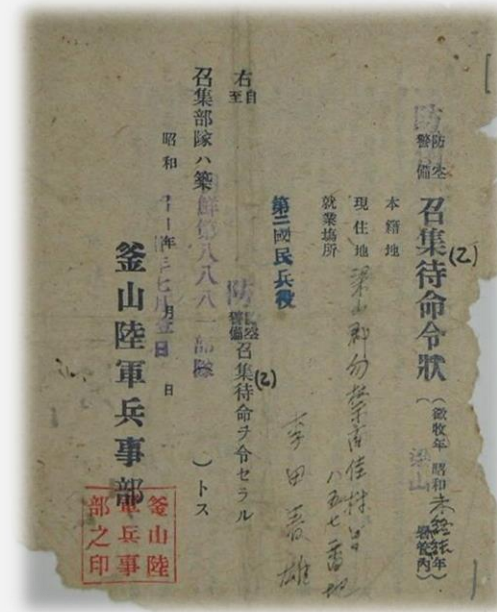 防空
警備
召集待命令狀(乙)
(徵收年 昭和 未經統年)
梁山
署管內
本籍地
現住地 梁山郡勿禁面佳村里
八五七番地
就業場所
第二國民兵役
李田春雄
右
自
至
防空
警備
召集待命ヲ令セラル
(乙)
召集部隊ハ
鮮第八八八一部隊
)トス
昭和 二十年 七月壹日
月 日
釜山陸軍兵事部
釜山陸
軍兵事
部之印